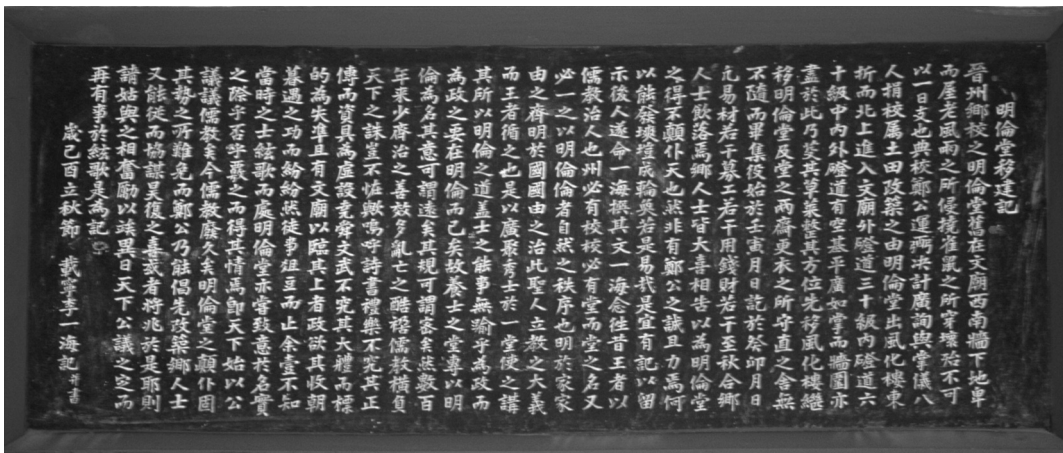 明倫堂移建記
晉州鄉校之明倫堂舊在文廟西南牆下地卑
而屋老風雨之所侵撓雀鼠之所穿壞殆不可
以一日支也典校鄭公運 計廣詢與掌儀八
人捐校属土田改築之由明倫堂出風化樓東
折而北上進入文廟外磴道三十級內磴道六
十級中內外磴道有空基平廣如掌而牆圍亦
盡於此乃芟其草萊整其方位先移風化樓繼
移明倫堂及堂之兩齋更衣之所守直之舍無
不隨而畢集役始於壬寅月日訖於癸卯月日
凡易材若干募工若干用錢財若干至秋合鄉
人士飲落焉鄉人士皆大喜相告以為明倫堂
之得不顛仆天也然非有鄭公之誠且力焉何
以能發墺塏成輪奐若是易哉是宜有記以留
示後人遂命一海撰其文一海念往昔王者以
儒教治人也州必有校校必有堂而堂之名又
必一之以明倫倫者自然之秩序也明於家家
由之齊明於國國由之治此聖人立教之大義
而王者循之也是以廣聚秀士於一堂使之講
其所以明倫之道盖士之能事無踰乎為政而
為政之要在明倫而已矣故養士之堂專以明
倫為名其意可謂遠矣其規可謂密矣然數百
年來少齊治之善效多亂亡之酷稽儒教橫負
天下之誅豈不怪歟嗚呼詩書禮樂不究其正
傳而資具為厖設堯舜文武不究其大體而標
的為失準且有文廟以臨其上者政欲其收朝
暮遇之功而紛紛然徒事俎豆而止余壹不知
當時之士絃歌而處明倫堂亦嘗致意於名實
之際乎否乎覈之而得其情焉卽天下姑以公
議議儒教矣今儒教廢久矣明倫堂之顛仆固
其勢之所難免而鄭公乃能倡先改築鄉人士
又能從而協謀昊復之喜或者將兆於是耶則
請姑與之相奮勵以竢異日天下公議之定而
再有事於絃歌是為記
歲己酉立秋節 載寧李一海記 并書